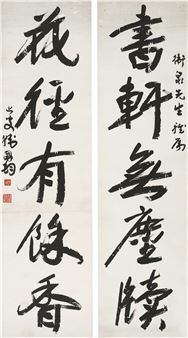 書軒無塵牘
衡泉先生雅屬
花徑有餘香